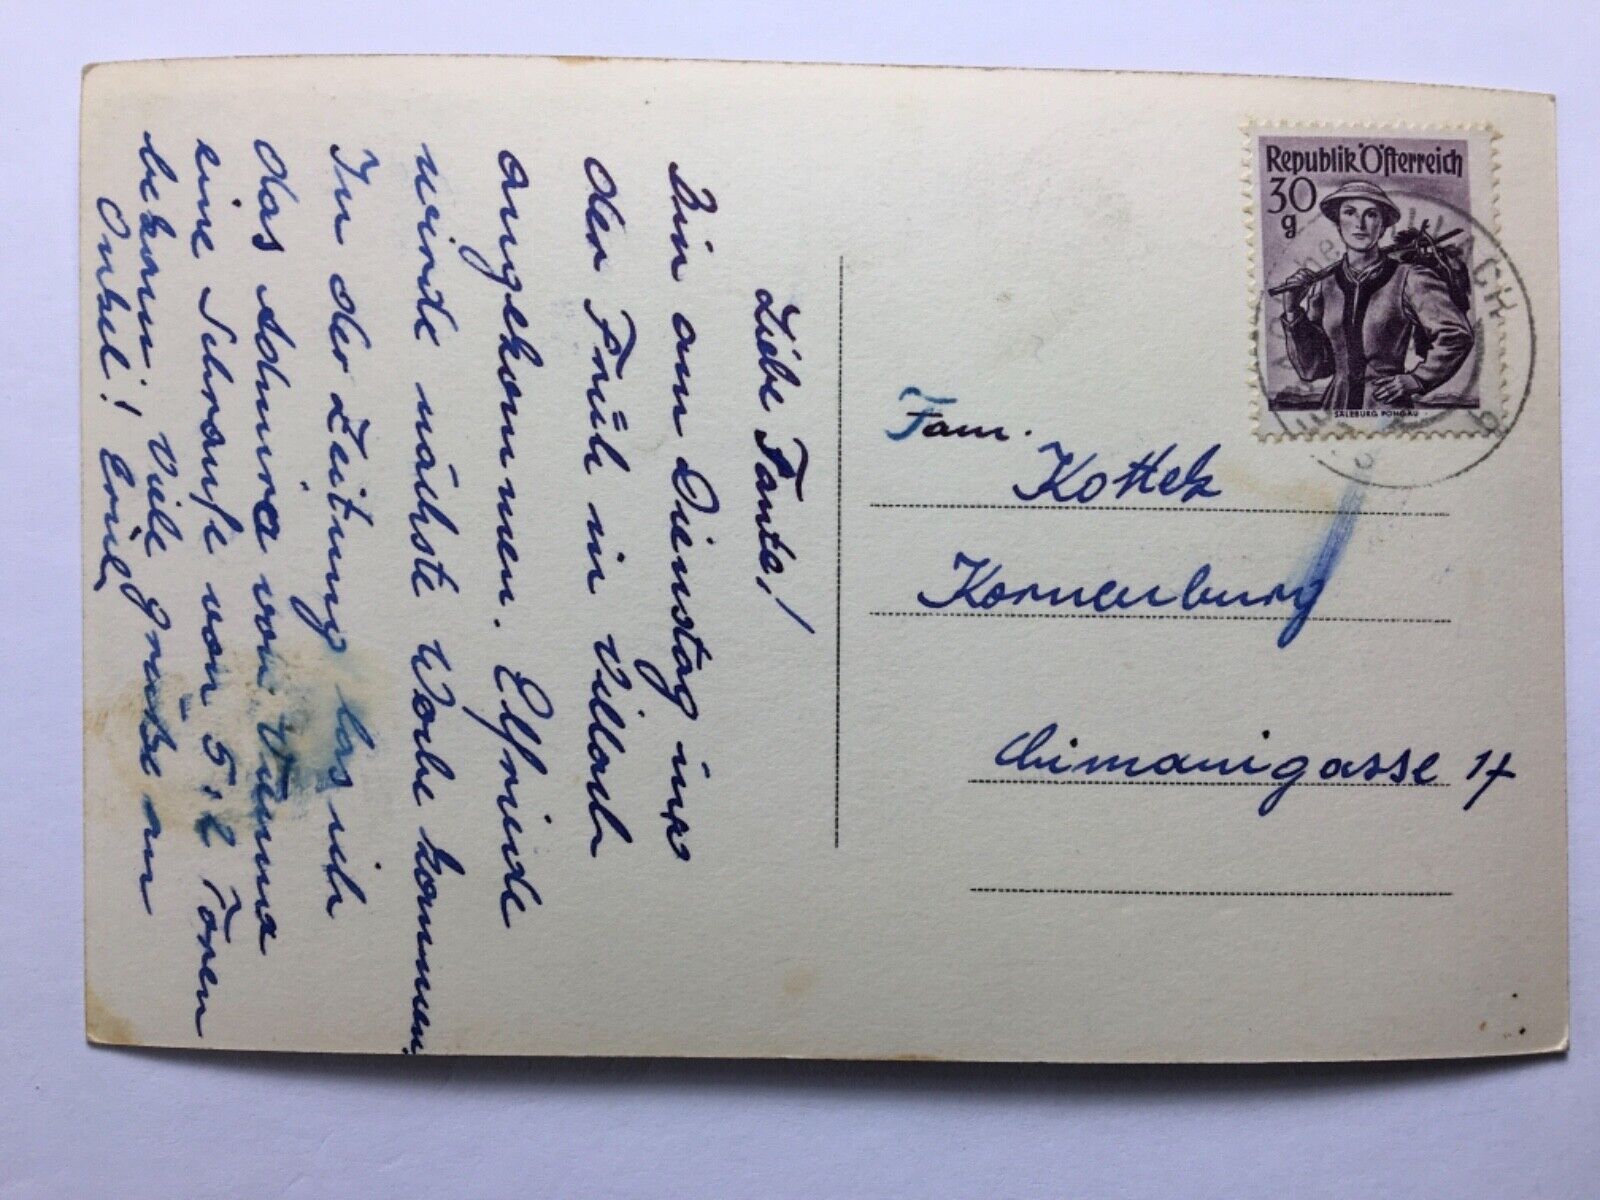 Liebe Tante!
Bin am Dienstag
der Früh in Villach
angekommen. Elfriede
wirde nächste Woche kommen.
In der Zeitung las ich
das Admira von Vienna
eine Schraufe von 5:2 Toren
bekam. Viele grüße an
Onkel!
Republik Österreich
30
g
SALZBURG PONGAU
Fam.
Kottek
Korneuburg
gasse 14